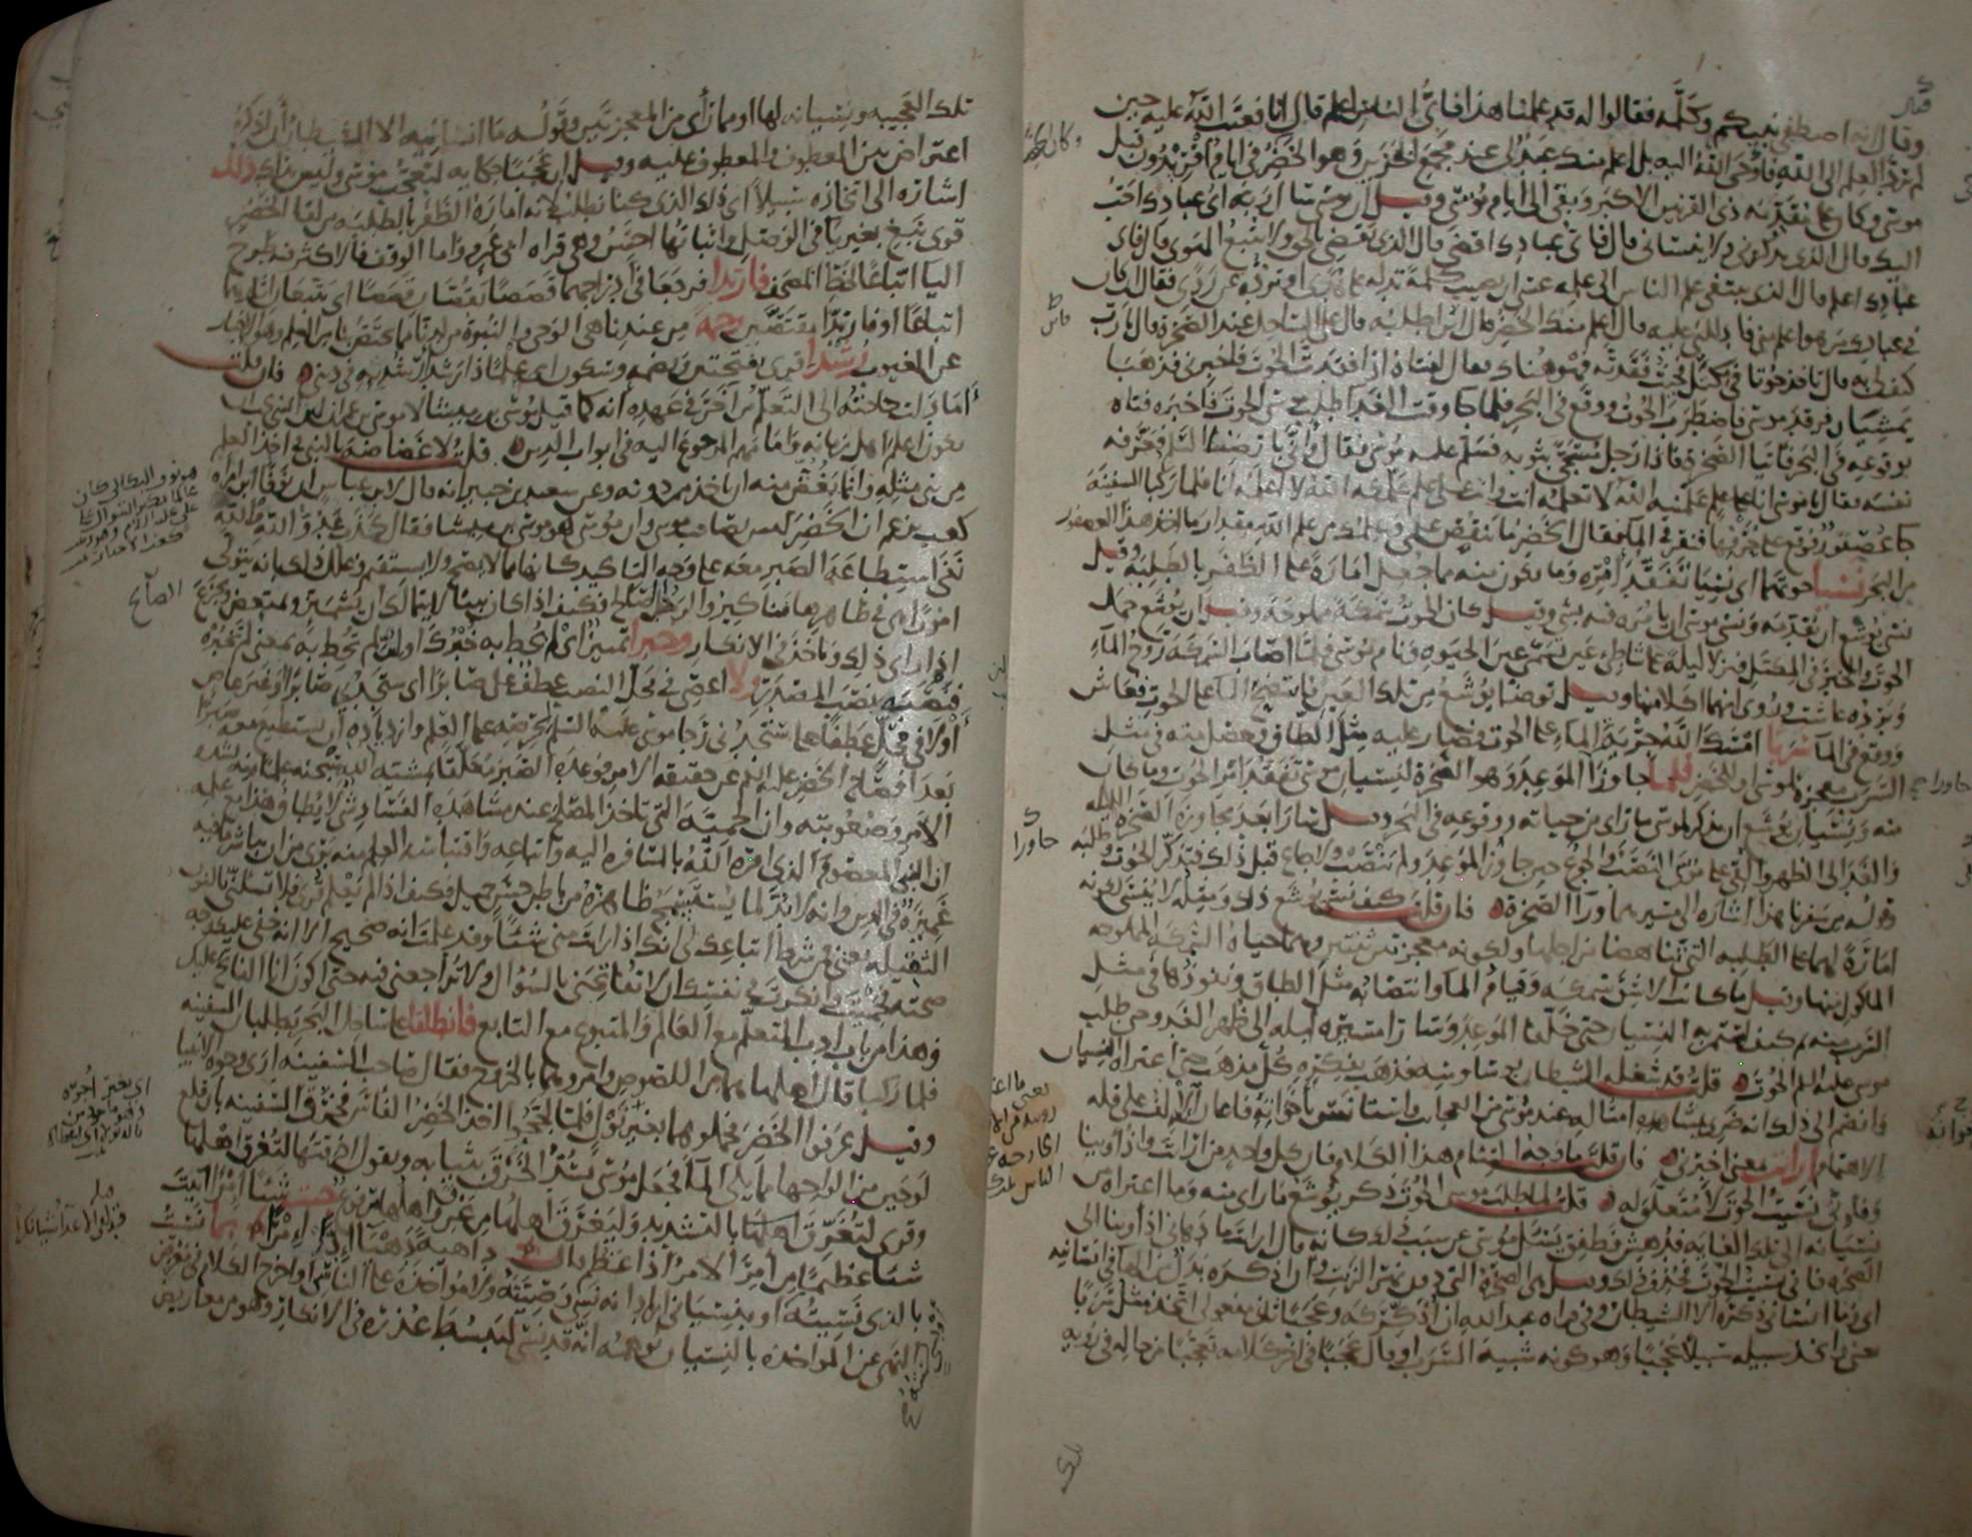 وقال ان الله اصطفى نبيكم وكلمه فقالوا له قد علمنا هذا فاى الناس اعلم قال انا فعتب الله عليه حين
لم يرد العلم الى الله فاوحى الله اليه بل اعلم منك عبد لى عند مجمع البحرين وهو الخضر وكان الخضر فى ايام افريدون قبل
موسى وكان على مقدمة ذى القرنين الاكبر وبقى الى ايام موسى وقيل ان موسى سال ربه اى عبادك احب
اليك قال الذى يذكرنى ولا ينسانى قال فاى عبادك اقضى قال الذى يقضى بالحق ولا يتبع الهوى قال فاى
عبادك اعلم قال الذى يبتغى علم الناس الى علمه عسى ان يصيب كلمة تدله على هدى او ترده عن ردى فقال ان كان
فى عبادك من هو اعلم منى فادللنى عليه قال اعلم منك الخضر قال اين اطلبه قال على الساحل عند الصخرة قال يا رب
كيف لى به قال تاخذ حوتا فى مكتل فحيث فقدته فهو هناك فقال لفتاه اذا فقدت الحوت فاخبرنى فذهبا
يمشيان فرقد موسى فاضطرب الحوت ووقع فى البحر فلما جا وقت الغدا طلب موسى الحوت فاخبره فتاه
بوقوعه فى البحر فاتيا الصخرة فاذا رجل مسجى بثوبه فسلم عليه موسى فقال وانى بارضنا السلم فعرفه
نفسه فقال يا موسى انا على علم علمنيه الله لا تعلمه انت وانت على علم علمكه الله لا اعلمه انا فلما ركبا السفينة
جا عصفور فوقع على حرفها فنقر فى الما فقال الخضر ما ينقص علمى وعلمك من علم الله مقدار ما اخذ هذا العصفور
من البحر نسيا حوتهما اى نسيا تفقد امره وما يكون منه مما جعل امارة على الظفر بالطلبة وقيل
نسى يوشع ان يقدمه ونسى موسى ان يامره فيه بشى وقيل كان الحوت سمكة مملوحة وقيل ان يوشع حمل
الحوت والخبز فى المكتل فنزلا ليلة على شاطئ عين تسمى عين الحيوة ونام موسى فلما اصاب السمكة روح الماء
وبرده عاشت وروى انهما اكلا منها وقيل توضا يوشع من تلك العين فانتضح الماء على الحوت فعاش
ووقع فى الما سربا امسك الله جرية الماء على الحوت فصار عليه مثل الطاق وحصل منه فى مثل
السرب معجزة لموسى او للخضر فلما جاوزا الموعد وهو الصخرة لنسيان موسى تفقد امر الحوت وما كان
منه ونسيان يوشع ان يذكر لموسى ما راى من حياته ووقوعه فى البحر وقيل سارا بعد مجاوزة الصخرة الليلة
والغد الى الظهر والقى على موسى النصب والجوع حين جاوز الموعد ولم ينصب ولا جاع قبل ذلك فتذكر الحوت وطلبه
وقوله من سفرنا هذا اشارة الى مسيرهما ورا الصخرة فان قلت كيف نسى يوشع ذلك ومثله لا ينسى لكونه
امارة لهما على الطلبة التى تناهضا من اجلها ولكونه معجزتين ثنتين وهما حياة السمكة المملوحة
الماكول منها وقيل ما كانت الا شق سمكة وقيام الما وانتصابه مثل الطاق ونفوذها فى مثل
السرب منه ثم كيف استمر به النسيان حتى خلفا الموعد وسارا مسيرة ليلة الى ظهر الغد وحتى طلب
موسى عليه السلم الحوت قلت قد شغله الشيطان بوساوسه فذهب بفكره كل مذهب حتى اعتراه النسيان
وانضم الى ذلك انه ضرى بمشاهدة امثاله عند موسى من العجائب واستانس باخواته فاعان الالف على قلة
الاهتمام ارايت بمعنى اخبرنى فان قلت ما وجه التيام هذا الكلام فان كل واحد من ارايت واذ اوينا
وفانى نسيت الحوت لا متعلق له قلت لما طلب موسى الحوت ذكر يوشع ما راى منه وما اعتراه من
نسيانه الى تلك الغاية فدهش فطفق يسئل موسى عن سبب ذلك كانه قال ارايت ما دهانى اذ اوينا الى
الصخرة فانى نسيت الحوت فحذف ذلك وقيل هى الصخرة التى دون نهر الزيت وان اذكره بدل من الها فى انسانيه
اى وما انسانى ذكره الا الشيطان وفى قراة عبد الله ان اذكركه وعجبا ثانى مفعولى اتخذ مثل سربا
يعنى واتخذ سبيله سبيلا عجبا وهو كونه شبيه السرب او قال عجبا فى اخر كلامه تعجبا من حاله فى روية
تلك العجيبة ونسيانه لها او مما راى من المعجزتين وقوله وما انسانيه الا الشيطان ان اذكره
اعتراض بين المعطوف والمعطوف عليه وقيل ان عجبا حكاية لتعجب موسى وليس بذاك ذلك
اشارة الى اتخاذه سبيلا اى ذلك الذى كنا نطلب لانه امارة الظفر بالطلبة من لقا الخضر
قرى نبغ بغير يا فى الوصل واثباتها احسن وهى قراة ابى عمرو واما الوقف فالاكثر فيه طرح
اليا اتباعا لخط المصحف فارتدا فرجعا فى ادراجهما قصصا يقصان قصصا اى يتبعان اثارهما
اتباعا او فارتدا مقتصين رحمة من عندنا هى الوحى والنبوة من لدنا مما يختص بنا من العلم وهو الاخبار
عن الغيوب رشدا قرى بفتحتين وبضمة وسكون اى علما ذا رشد ارشد به فى دينى فان قلت
اما دلت حاجته الى التعلم من اخر فى عهده انه كما قيل موسى بن ميشا لا موسى بن عمران لان النبى يجب ان
يكون اعلم اهل زمانه وامامهم المرجوع اليه فى ابواب الدين قلت لا غضاضة بالنبى فى اخذ العلم
من نبى مثله وانما يغض منه ان ياخذ ممن دونه وعن سعيد بن جبير انه قال لابن عباس ان نوفا ابن امراة
كعب يزعم ان الخضر ليس بصاحب موسى وان موسى هو موسى بن ميشا فقال كذب عدو الله
نفى استطاعة الصبر معه على وجه التاكيد كانها مما لا يصح ولا يستقيم وعلل ذلك بانه يتولى
امورا هى فى ظاهرها مناكير والرجل الصالح فكيف اذا كان نبيا لا يتمالك ان يشمئز ويمتعض ويجزع
اذا راى ذلك وياخذ فى الانكار وخبرا تمييز اى لم يحط به خبرك او لان لم تحط به بمعنى لم تخبره
فنصبه نصب المصدر ولا اعصى فى محل النصب عطف على صابرا اى ستجدنى صابرا وغير عاص
او لا فى محل عطفا على ستجدنى رجا موسى عليه السلم لحرصه على العلم وازدياده ان يستطيع معه صبرا
بعد افصاح الخضر عليه السلم عن حقيقة الامر فوعده الصبر معلقا بمشية الله علما منه بشدة
الامر وصعوبته وان الحمية التى تاخذ المصلح عند مشاهدة الفساد شى لا يطاق هذا مع علمه
ان النبى المعصوم الذى امره الله بالمسافرة اليه واتباعه واقتباسه العلم منه برى من ان يباشر ما فيه
غميزة فى الدين وانه لا بد لما يستسمج ظاهره من باطن حسن جميل فكيف اذا لم يعلم قرى فلا تسئلنى بالنون
الثقيلة يعنى فمن شرط اتباعك لى انك اذا رايت منى شيئا وقد علمت انه صحيح الا انه خفى عليك وجه
صحته فحميت وانكرت فى نفسك ان لا تفاتحنى بالسؤال ولا تراجعنى فيه حتى اكون انا الفاتح عليك
وهذا من باب ادب المتعلم مع العالم والمتبوع مع التابع فانطلقا على ساحل البحر يطلبان السفينة
فلما ركبا قال اهلها هما من اللصوص وامروهما بالخروج فقال صاحب السفينة ارى وجوه الانبيا
وقيل عرفوا الخضر فحملوهما بغير نول فلما لججوا اخذ الخضر الفاس فخرق السفينة بان قلع
لوحين من الواحها مما يلى الما فجعل موسى يسد الخرق بثيابه ويقول اخرقتها لتغرق اهلها
وقرى لتغرق اهلها بالتشديد وليغرق اهلها من غرق واهلها مرفوع جئت شيئا امرا اتيت
شيئا عظيما من امر الامر اذا عظم قال داهية دهيا ادا امرا بما نسيت
بالذى نسيته او بنسيانى اراد انه نسى وصيته ولا مواخذة على الناسى او اخرج الكلام فى معرض
النهى عن المواخذة بالنسيان يوهمه انه قد نسى ليبسط عذره فى الانكار وهو من معاريض
هو نوف البكالى كان
الصالح
اى بغير اجرة
جاوزا